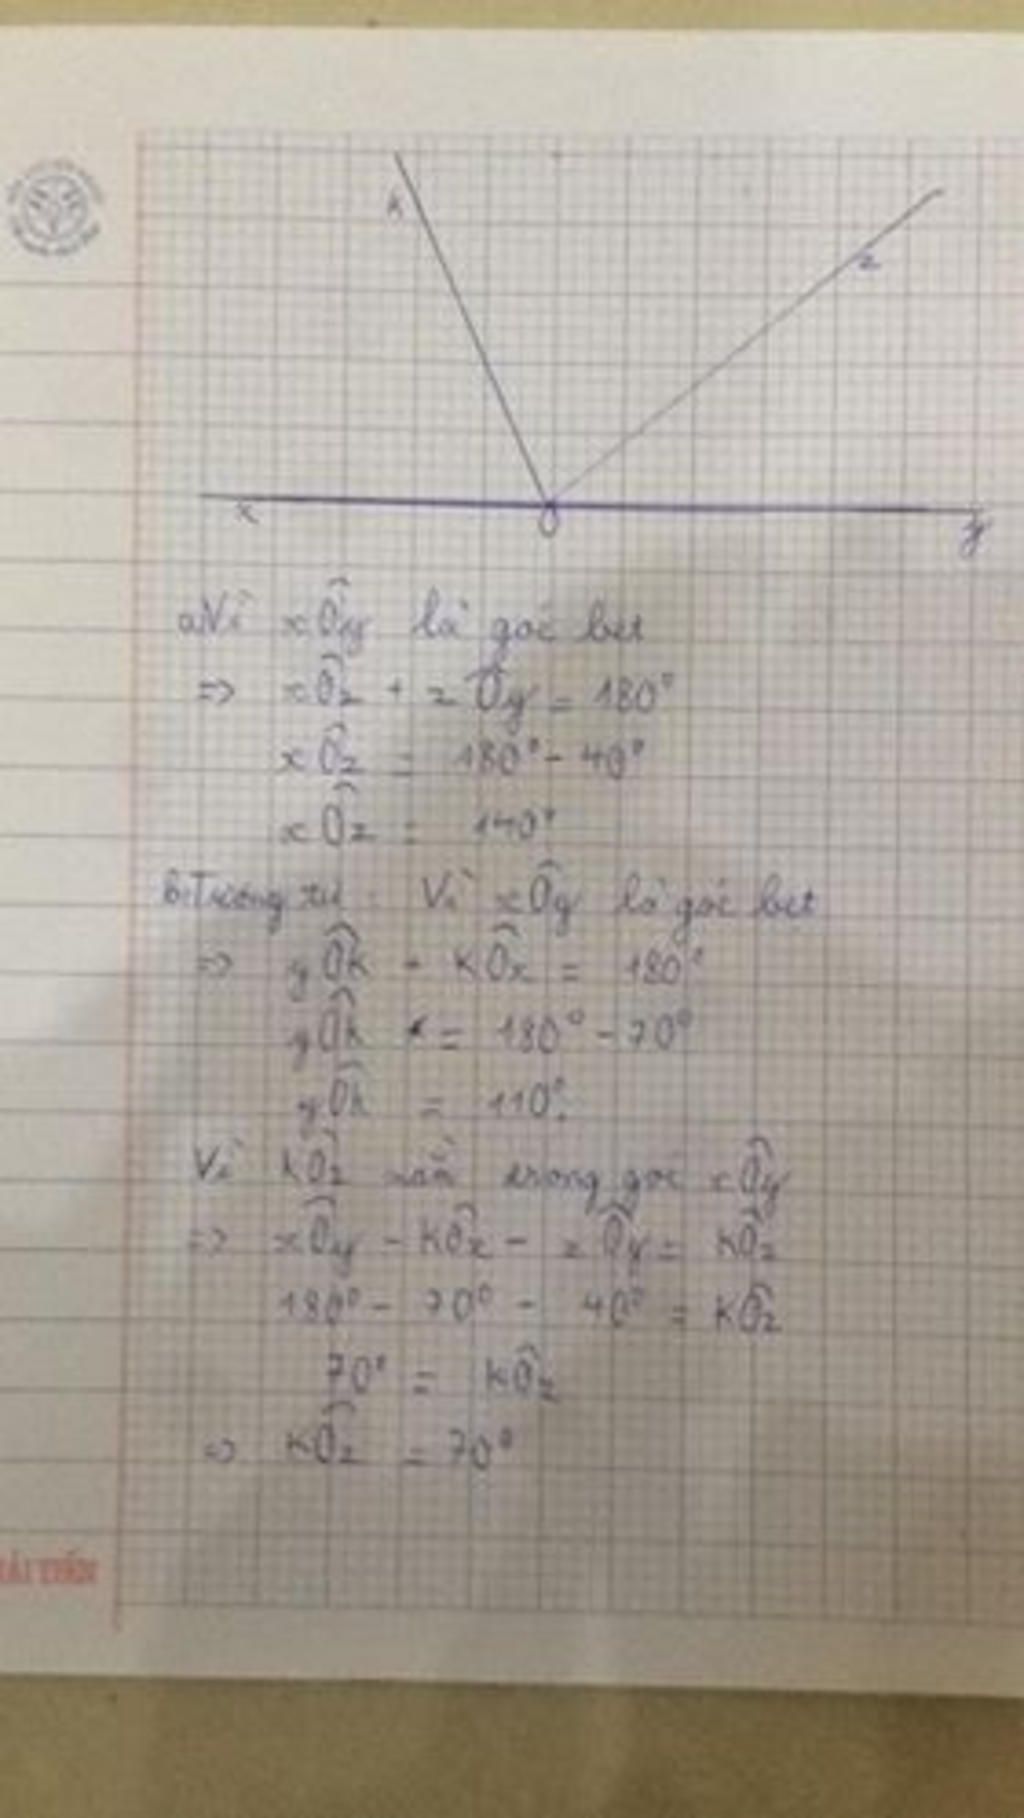 k
z
x
O
y
a. Vì xÔy là góc bẹt
=> xÔz + zÔy = 180°
xÔz = 180° - 40°
xÔz = 140°
b. Tương tự : Vì xÔy là góc bẹt
=> yÔk + kÔx = 180°
yÔk = 180° - 70°
yÔk = 110°
Vì kÔz trong góc xÔy
=> xÔy - kÔx - zÔy = kÔz
180° - 70° - 40° = kÔz
70° = kÔz
=> kÔz = 70°
HẢI TIẾN